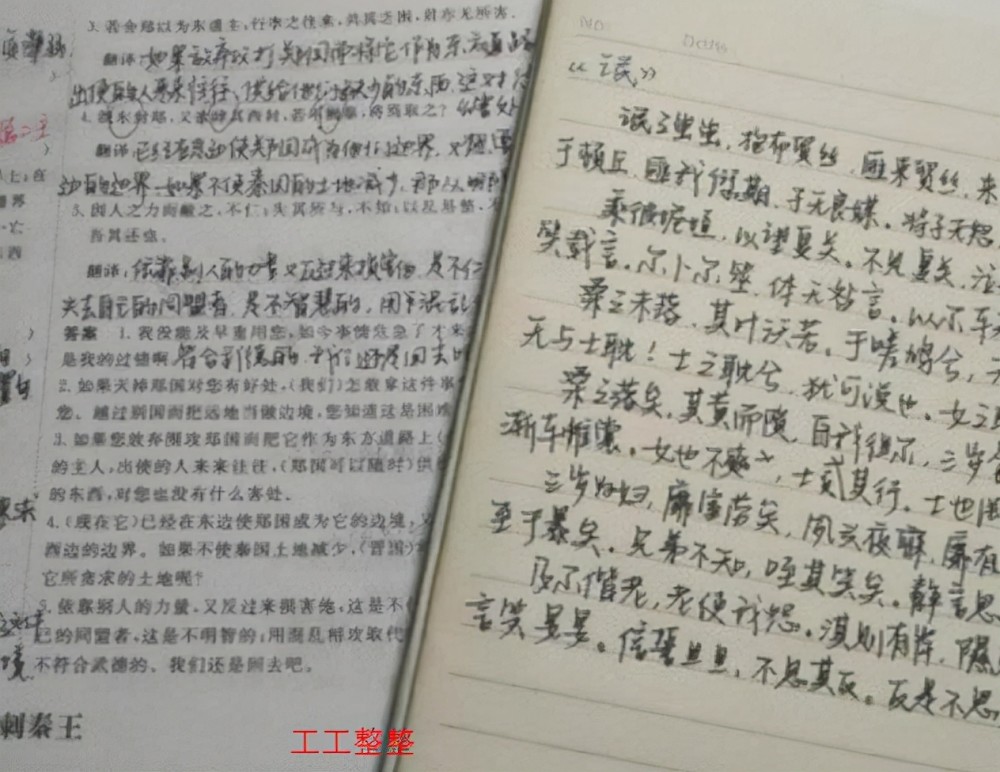 3. 若舍郑以为东道主,行李之往来,共其乏困,君亦无所害。
翻译:如果放弃攻打郑国而将它作为东方道路
出使的人来来往往,供给他们缺少的东西,这对
4. 既东封郑,又欲肆其西封,若不阙秦,将焉取之?
翻译:已经在东边使郑国成为他的边界,又想
边的边界。如果不使秦国的土地减少,那从哪
5. 因人之力而敝之,不仁;失其所与,不知;以乱易整,不
吾其还也。
翻译:依靠别人的力量又反过来损害他,是不仁
失去自己的同盟者,是不智慧的,用
答案 1. 我没能及早重用您,如今事情危急了才来
是我的过错啊
符合武德的,我们还是回去吧
2. 如果灭掉郑国对您有好处,(我们)怎敢拿这件事
您。越过别国而把远地当做边境,您知道这是困难
3. 如果您放弃围攻郑国而把它作为东方道路上(
的主人,出使的人来来往往,(郑国可以随时)供
的东西,对您也没有什么害处。
4. (现在它)已经在东边使郑国成为它的边境,又
西边的边界。如果不使秦国土地减少,(晋国)
它所贪求的土地呢?
5. 依靠别人的力量,又反过来损害他,这是不仁
己的同盟者,这是不明智的;用混乱相攻取代
不符合武德的。我们还是回去吧。
刺秦王
工工整整
NO.
Date
《氓》
氓之蚩蚩,抱布贸丝,匪来贸丝,来
于顿丘,匪我愆期,子无良媒。将子无怒
乘彼垝垣,以望复关。不见复关,泣
笑载言。尔卜尔筮,体无咎言。以尔车
桑之未落,其叶沃若。于嗟鸠兮,无
无与士耽!士之耽兮,犹可说也。女之
桑之落矣,其黄而陨,自我徂尔,三岁食
渐车帷裳。女也不爽,士贰其行。士也罔
三岁为妇,靡室劳矣,夙兴夜寐,靡有
至于暴矣。兄弟不知,咥其笑矣。静言思
及尔偕老,老使我怨。淇则有岸,隰
言笑晏晏。信誓旦旦,不思其反。反是不思,